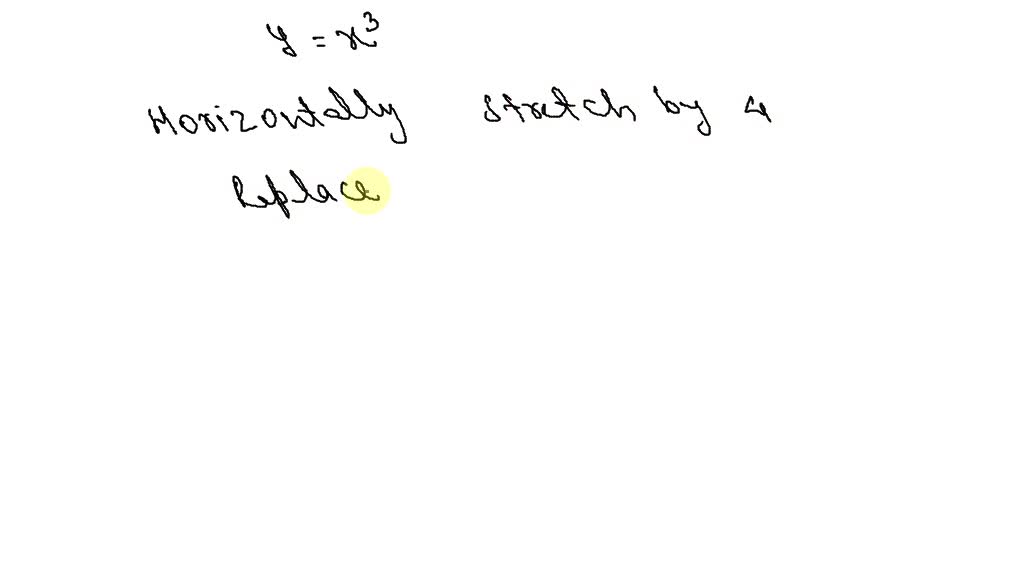 y = x³
Horizontally stretch by 4
Replace